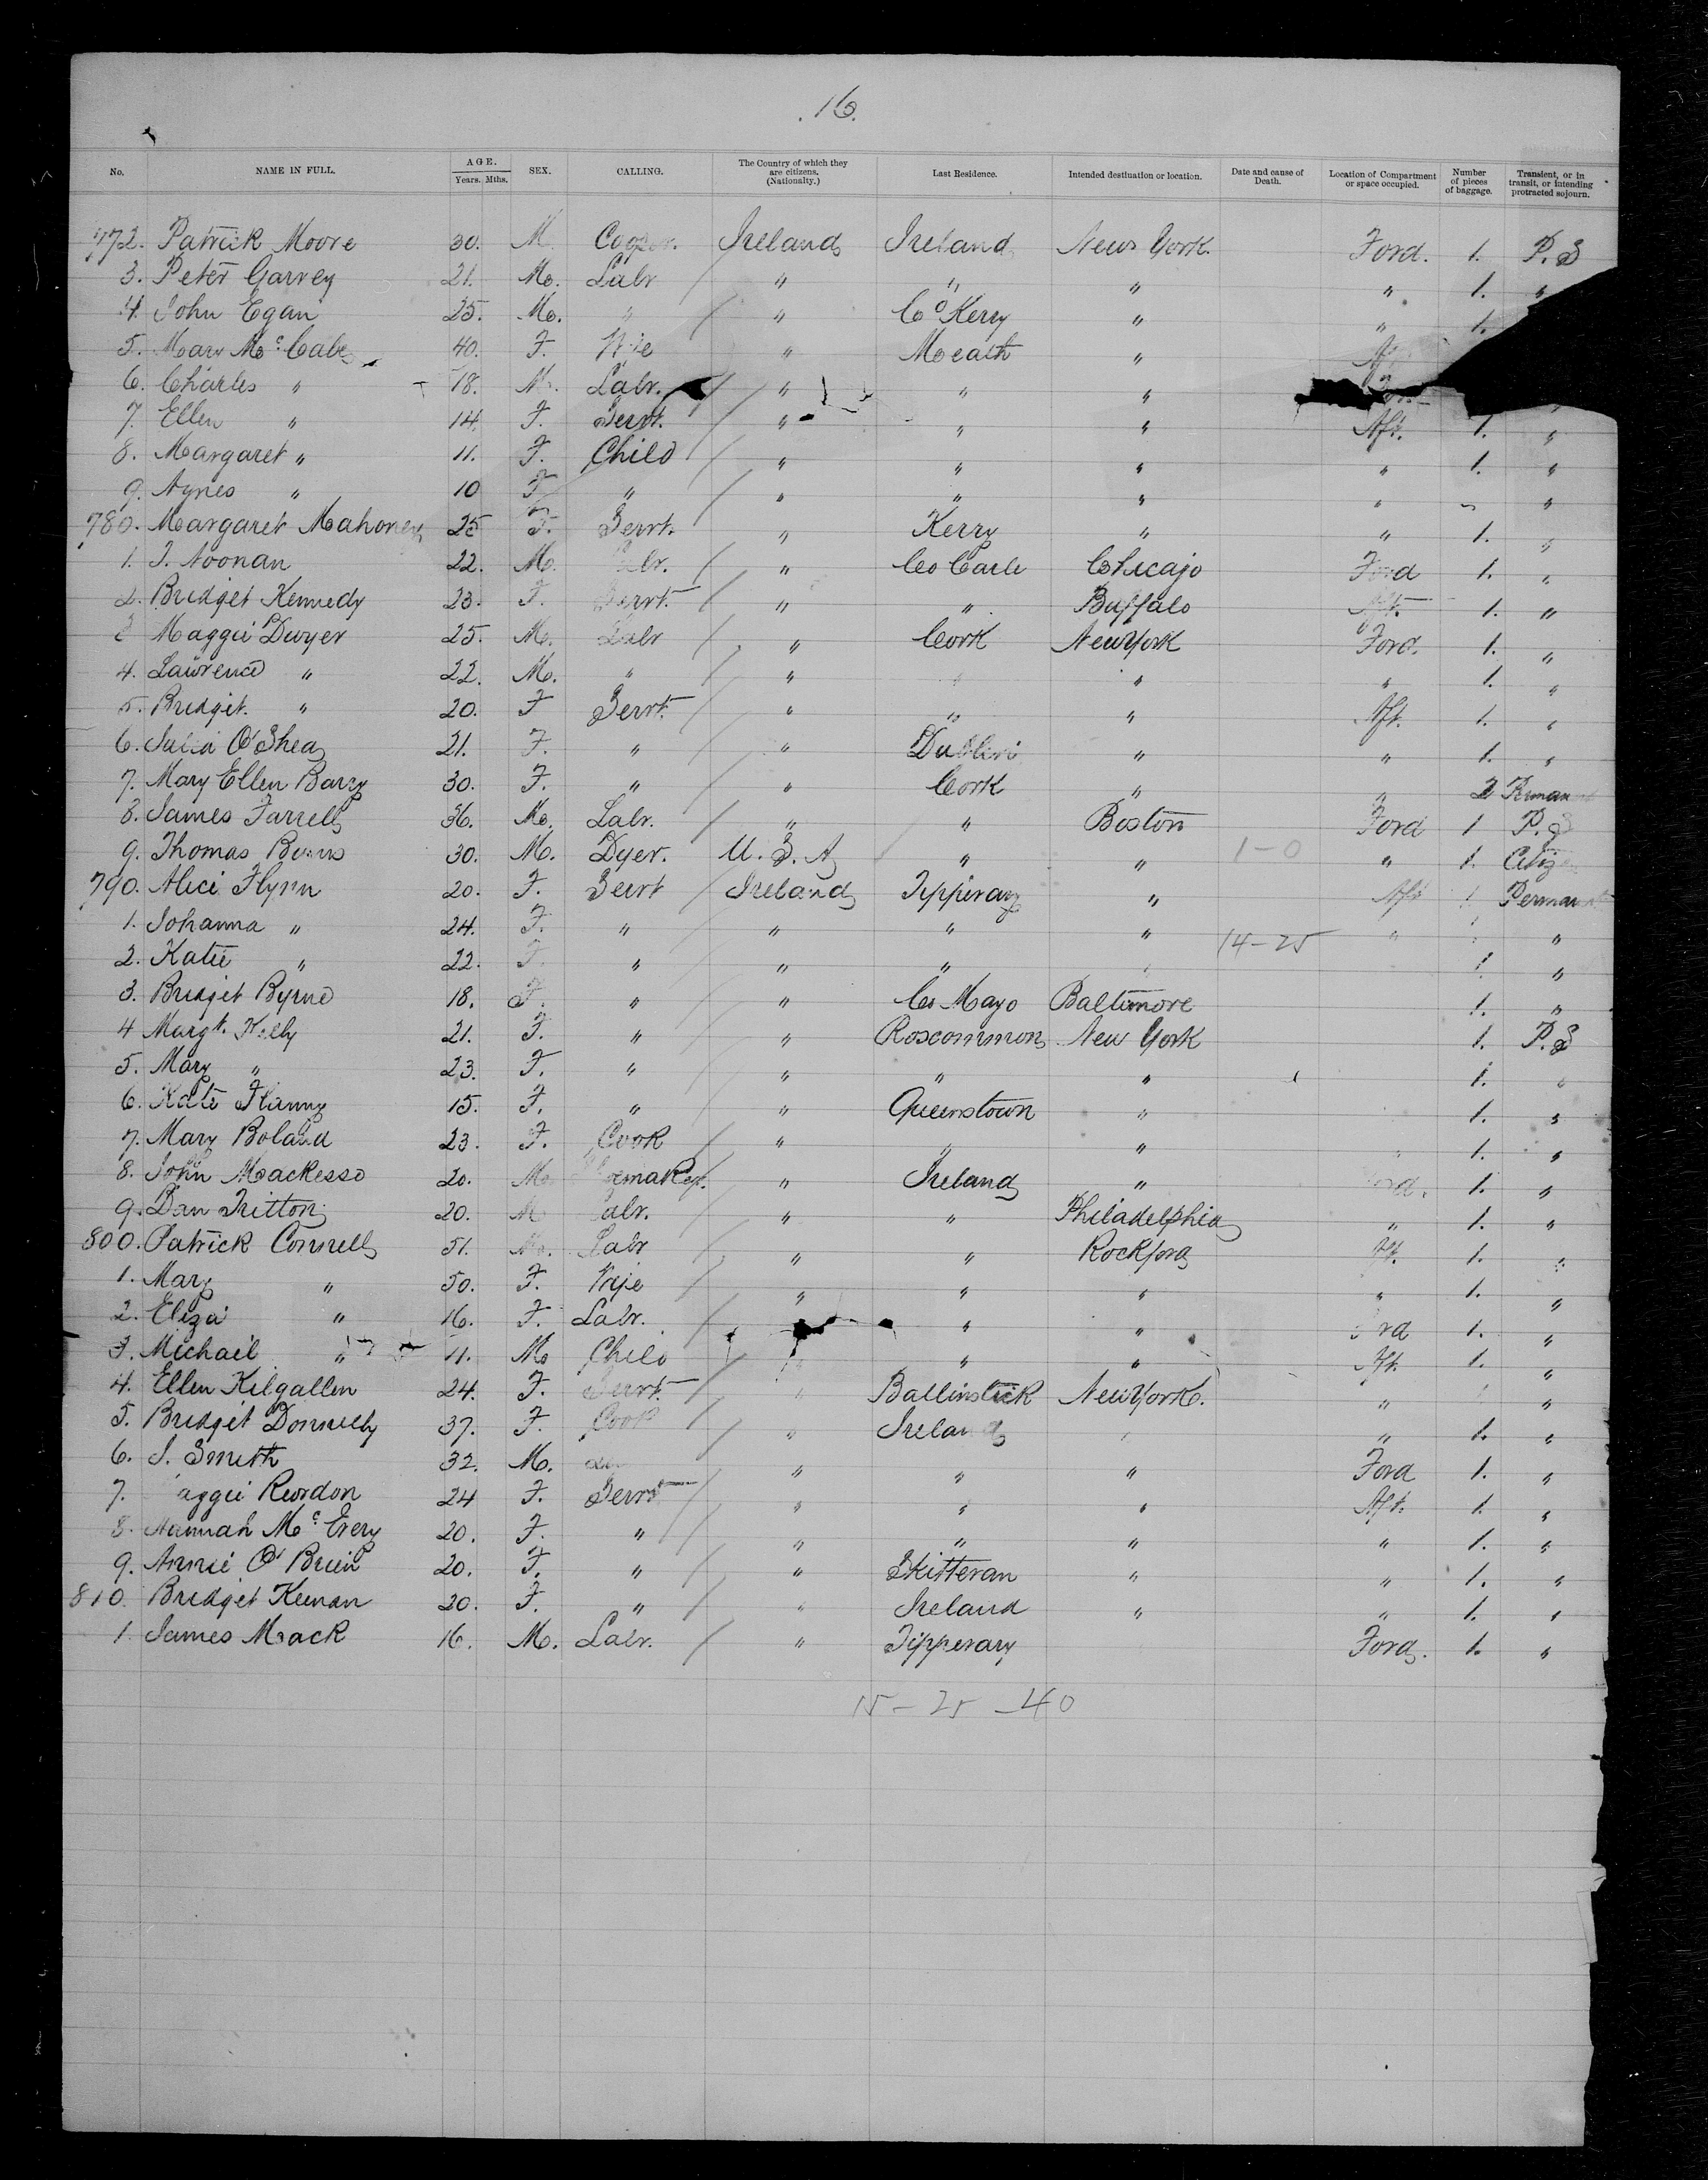 .16.
No. NAME IN FULL. AGE. Years. Mths. SEX. CALLING. The Country of which they are citizens. (Nationalty.) Last Residence. Intended destination or location. Date and cause of Death. Location of Compartment or space occupied. Number of pieces of baggage. Transient, or in transit, or intending protracted sojourn.
772. Patrick Moore 30. M. Cooper. Ireland Ireland New York. Ford. 1. P.S
3. Peter Garvey 21. M. Labr " " " " 1. "
4. John Egan 25. M. " " Co Kerry " " 1.
5. Mary McCabe 40. F. Wife " Meath "
6. Charles " 18. M. Labr. " " " "
7. Ellen " 14. F. Servt. " " " Aft. 1. "
8. Margaret " 11. F. Child " " " " 1. "
9. Agnes " 10 F " " " " " "
780. Margaret Mahoney 25 F. Servt. " Kerry " " 1. "
1. J. Noonan 22. M. Labr. " Co Chicago Ford 1. "
2. Bridget Kennedy 23. F. Servt. " " Buffalo Aft. 1. "
3 Maggie Dwyer 25. M. Labr " Cork New York Ford. 1. "
4. Lawrence " 22. M. " " " " " 1. "
5. Bridget. " 20. F Servt. " " " Aft. 1. "
6. Julia O'Shea 21. F. " " Dublin " " 1. "
7. Mary Ellen Barry 30. F. " " Cork " " 2
8. James Farrell 36. M. Labr. " " Boston Ford 1 P.S
9. Thomas Burns 30. M. Dyer. U.S.A " " 1-0 " 1. Citiz
790. Alice Flynn 20. F. Servt Ireland Tipperary " Aft 1. Permant
1. Johanna " 24. F. " " " " 14-25 " "
2. Katie " 22. F. " " " 1. "
3. Bridget Byrne 18. F. " " Co Mayo Baltimore 1. "
4 Margt. Kelly 21. F. " " Roscommon New York 1. P.S
5. Mary " 23. F. " " " " 1. "
6. Kate Flanny 15. F. " " Queenstown " 1. "
7. Mary Boland 23. F. Cook " " " 1. "
8. John Mackesso 20. M emaker. " Ireland " rd. 1. "
9. Dan Tritton 20. M Labr. " " Philadelphia " 1. "
800. Patrick Connell 51. M. Labr " " Rockford Aft. 1. "
1. Mary " 50. F. Wife " " " " 1. "
2. Eliza " 16. F. Labr. " " rd 1. "
3. Michael " 11. M Child " " Aft. 1. "
4. Ellen Kilgallen 24. F. Servt. " Ballinstick New York. " "
5. Bridget Donnelly 37. F. Cook " Ireland " " 1. "
6. J. Smith 32. M. " " " Ford 1. "
7. aggie Reordon 24 F. Servt " " " Aft. 1. "
8. Hannah McEvery 20. F. " " " " " 1. "
9. Annie O'Brien 20. F. " " Skitteran " " 1. "
810. Bridget Keenan 20. F. " " Ireland " " 1. "
1. James Mack 16. M. Labr. " Tipperary Ford. 1. "
15-25-40